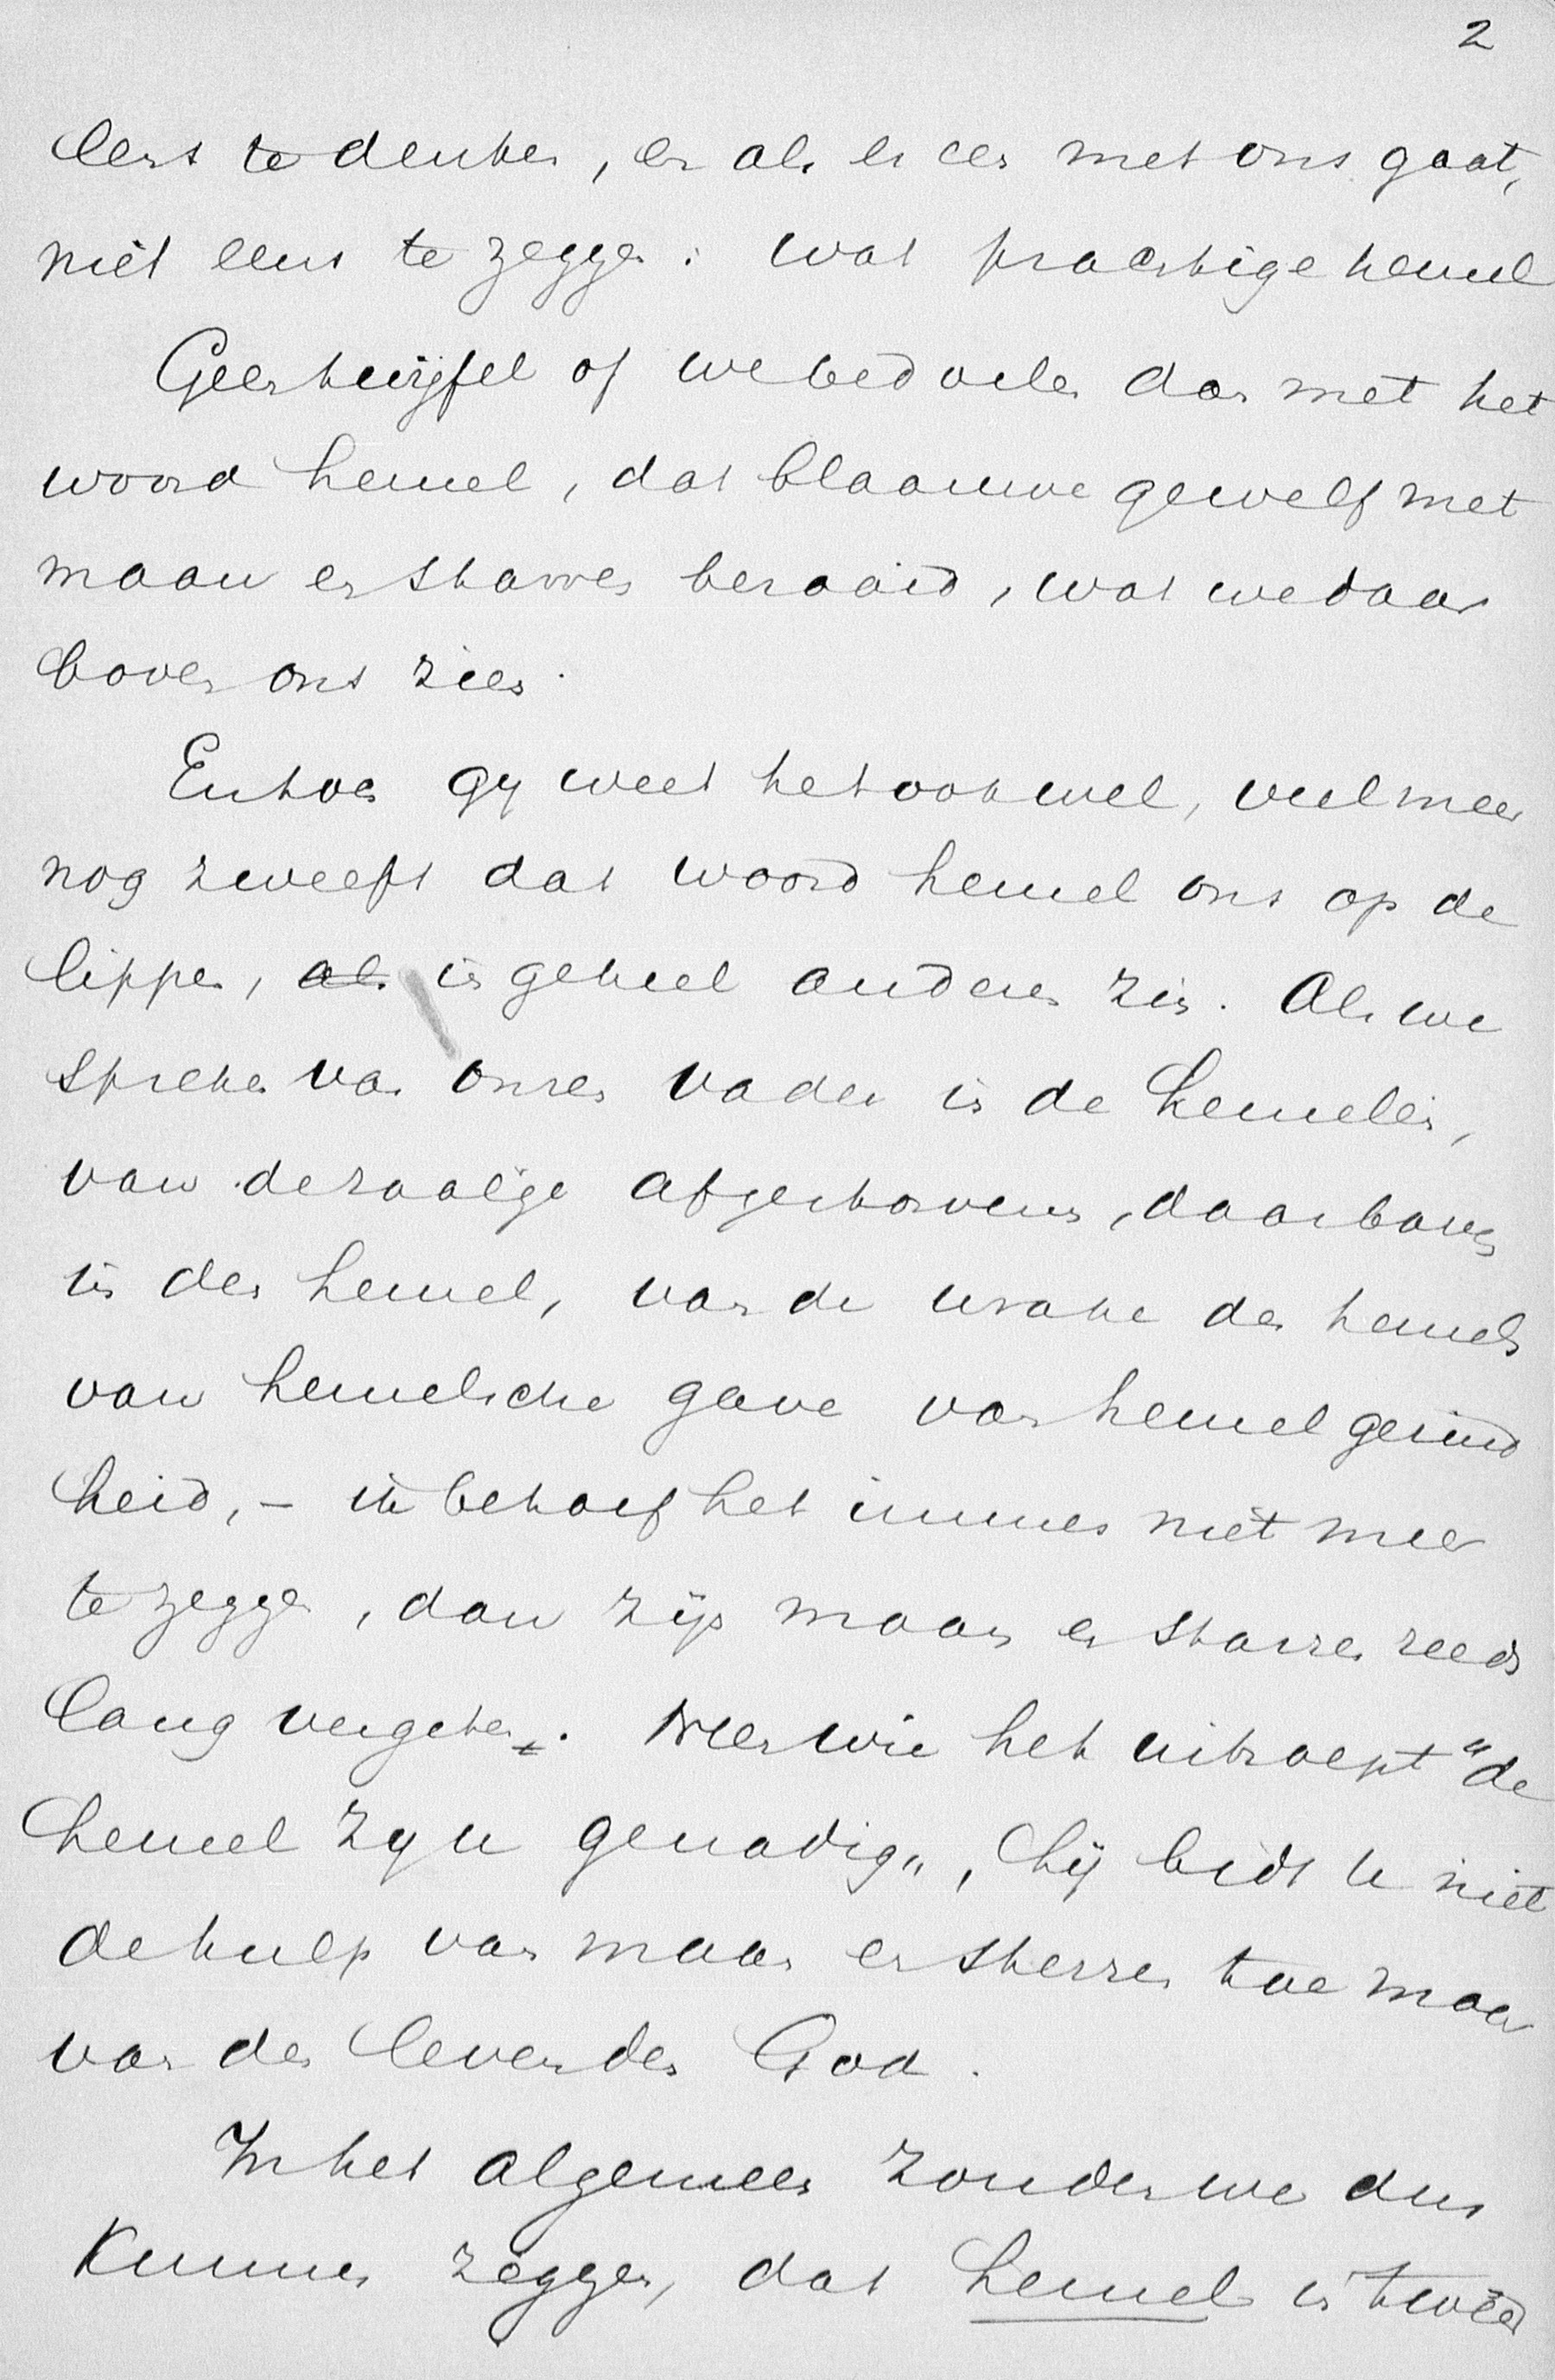 2
eens te denken, en als er een met ons gaat,
niet eens te zeggen: wat prachtige hemel
Geen twijfel of we bedoelen dan met het
woord hemel, dat blaauwe gewelf met
maan en starren bezaaid, wat we daar
boven ons zien.
En toch gy weet het ook wel, veel meer
nog zweeft dat woord hemel ons op de
lippen, als in geheel anderen zin. Als we
spreken van onzen vader in de hemelen,
van de zaalige afgestorvenen, daarboven
in den hemel, van de wrake des hemels
van hemelsche gave van hemelgezind
heid, - ik behoef het immers niet meer
te zeggen, dan zijn maan en starren reeds
lang vergeten. Neen wie het uitroept "de
hemel zy u genadig", hij bidt u niet
de hulp van maan en sterren toe maar
van den levenden God.
In het algemeen zouden we dus
kunnen zeggen, dat hemel in tweeë